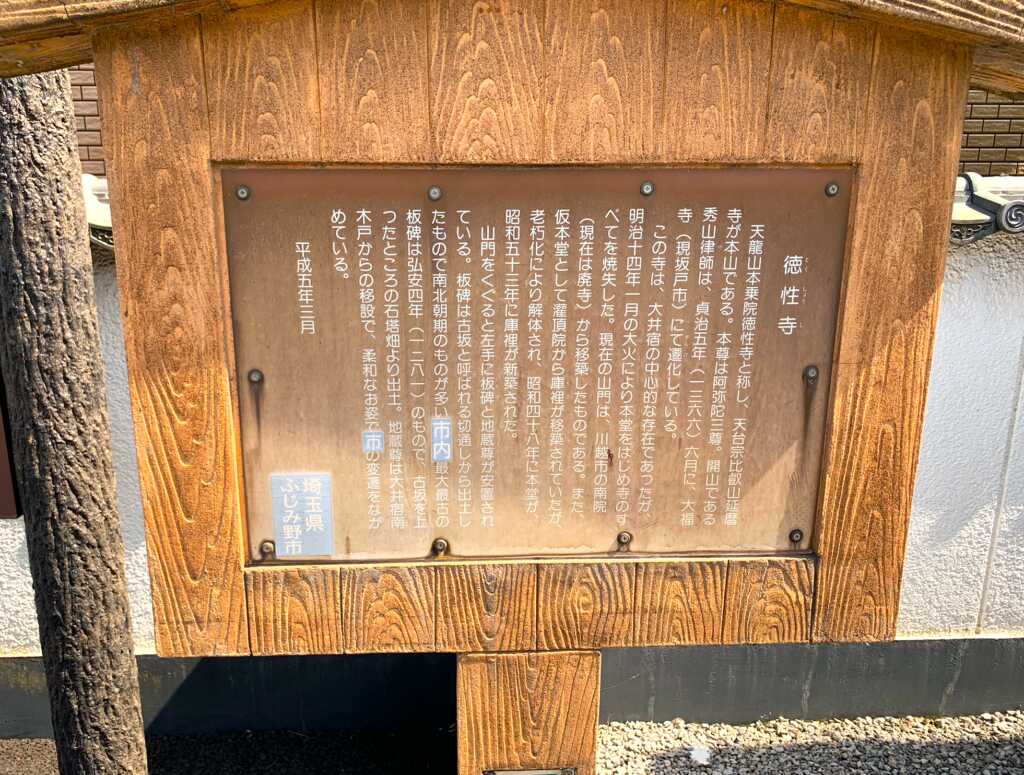 徳性寺
天龍山本乗院徳性寺と称し、天台宗比叡山延暦
寺が本山である。本尊は阿弥陀三尊。開山である
秀山律師は、貞治五年（一三六六）六月に、大福
寺（現坂戸市）にて遷化している。
この寺は、大井宿の中心的な存在であったが、
明治十四年一月の大火により本堂をはじめ寺のす
べてを焼失した。現在の山門は、川越市の南院
（現在は廃寺）から移築したものである。また、
仮本堂として灌頂院から庫裡が移築されていたが、
老朽化により解体され、昭和四十八年に本堂が、
昭和五十三年に庫裡が新築された。
山門をくぐると左手に板碑と地蔵尊が安置され
ている。板碑は古坂と呼ばれる切通しから出土し
たもので南北朝期のものが多い市内最大最古の
板碑は弘安四年（一二八一）のもので、古坂を上
つたところの石塔畑より出土。地蔵尊は大井宿南
木戸からの移設で、柔和なお姿で市の変遷をなが
めている。
平成五年三月
埼玉県
ふじみ野市